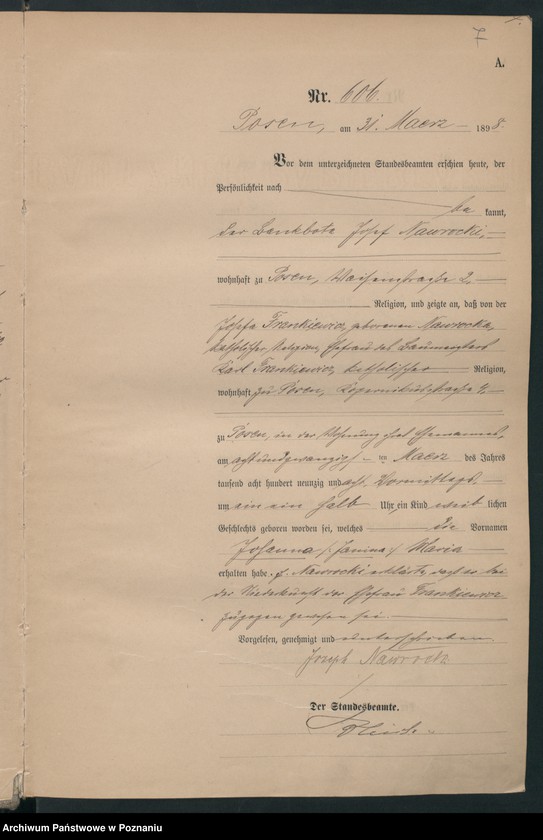 7
A.
Nr. 606.
Posen, am 31. Maerz 1898.
Vor dem unterzeichneten Standesbeamten erschien heute, der
Persönlichkeit nach
be kannt,
der Bankbote Josef Nawrocki,
wohnhaft zu Posen, Waisenstrasse 2,
Religion, und zeigte an, daß von der
Josefa Frankiewicz, geborenen Nawrocka,
katholischer Religion, Ehefrau des
Karl Frankiewicz, katholischer Religion,
wohnhaft zu Posen, Kopernikusstrasse
zu Posen, in der Wohnung ihres Ehemannes,
am achtundzwanzigsten Maerz des Jahres
tausend acht hundert neunzig und acht Vormittags
um ein ein halb Uhr ein Kind weib lichen
Geschlechts geboren worden sei, welches die Vornamen
Johanna /: Janina :/ Maria
erhalten habe. p. Nawrocki erklärte, dass er bei
der Niederkunft der Ehefrau Frankiewicz
zugegen gewesen sei.
Vorgelesen, genehmigt und unterschrieben
Joseph Nawrocki
Der Standesbeamte.
Archiwum Państwowe w Poznaniu